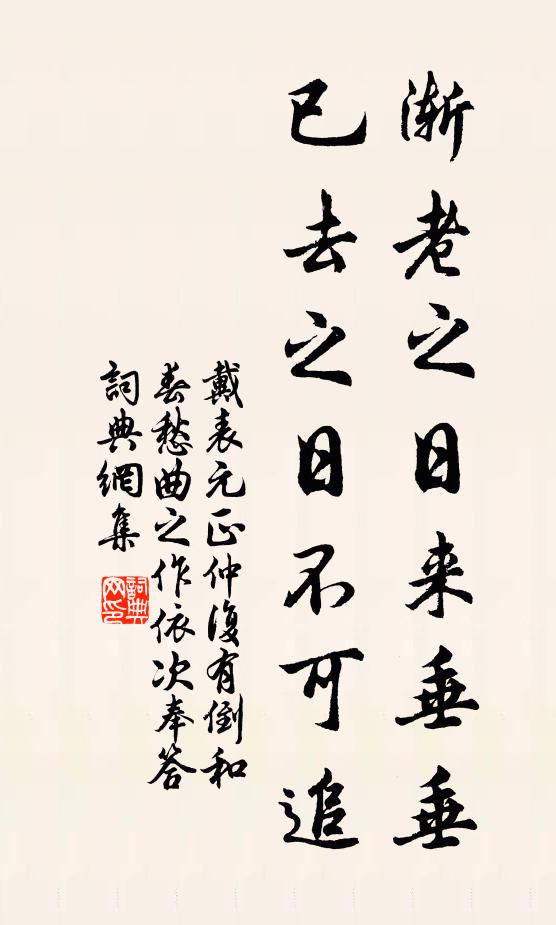 渐老之日来垂垂
已去之日不可追
戴表元正仲復有倒和
春愁曲之作依次奉答
詞典網集
詞典
网印